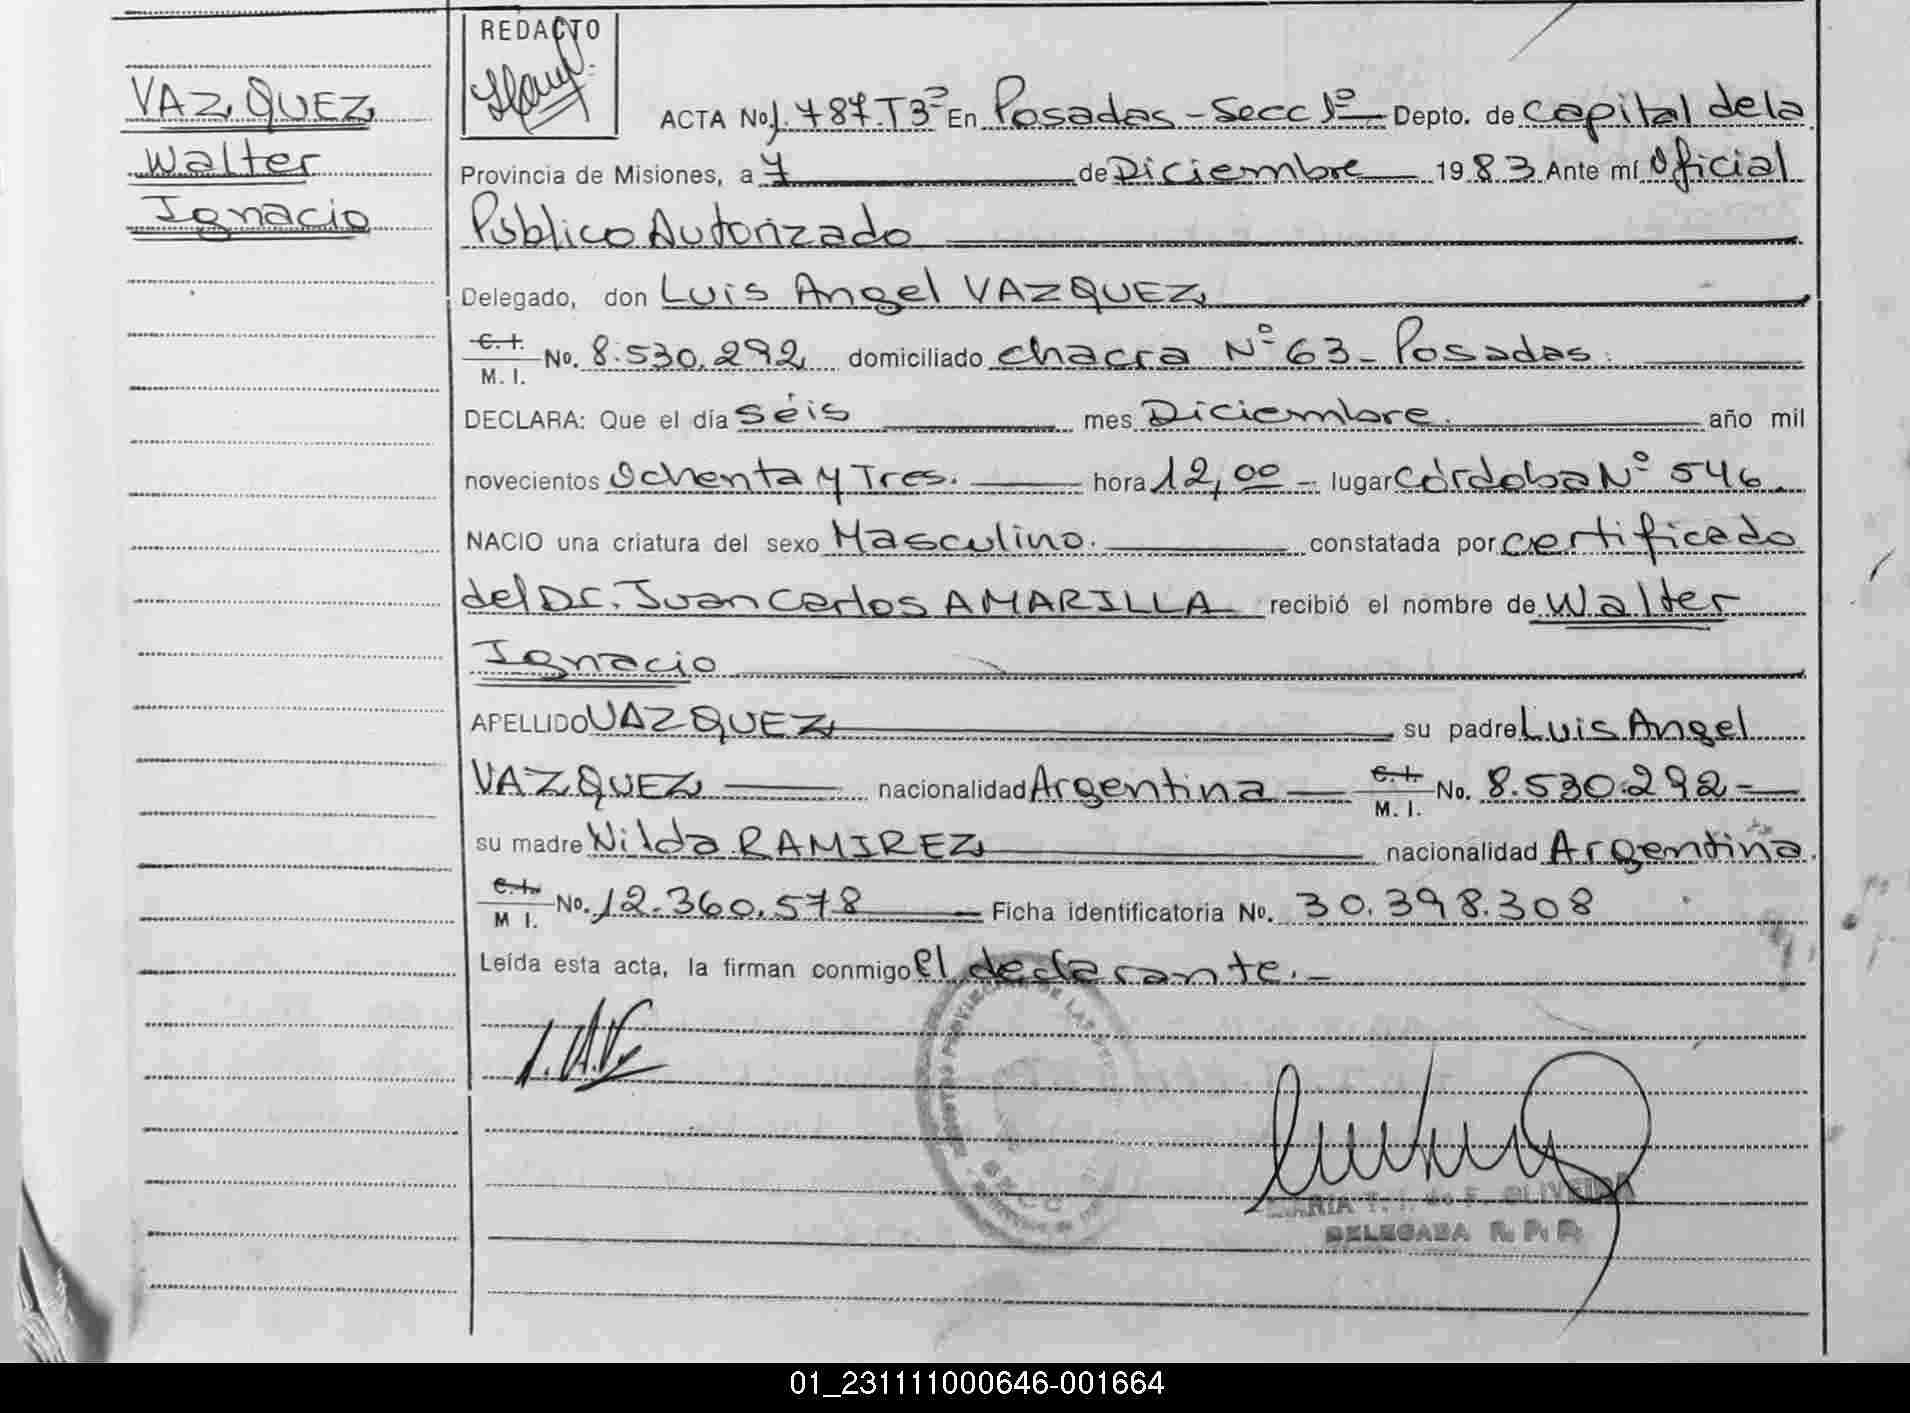 VAZQUEZ
Walter
Ignacio
REDACTO
ACTA No. 1.787.T3º En Posadas - Secc 1º Depto. de Capital de la
Provincia de Misiones, a 7 de Diciembre 1983 Ante mí Oficial
Público Autorizado
Delegado, don Luis Angel VAZQUEZ
C. I.
M. I. No. 8.530.292 domiciliado chacra Nº 63 - Posadas.
DECLARA: Que el día séis mes Diciembre. año mil
novecientos Ochenta y Tres. hora 12,00 - lugar Córdoba Nº 546.
NACIO una criatura del sexo Masculino. constatada por certificado
del Dr. Juan Carlos AMARILLA recibió el nombre de Walter
Ignacio
APELLIDO VAZQUEZ su padre Luis Angel
VAZQUEZ nacionalidad Argentina C. I.
M. I. No. 8.530.292 -
su madre Nilda RAMIREZ nacionalidad Argentina.
C. I.
M I. No. 12.360.578 Ficha identificatoria No. 30.398.308
Leída esta acta, la firman conmigo el declarante. -
MARIA T. I. de F. OLIVEIRA
DELEGADA R. P. P.
01_231111000646-001664